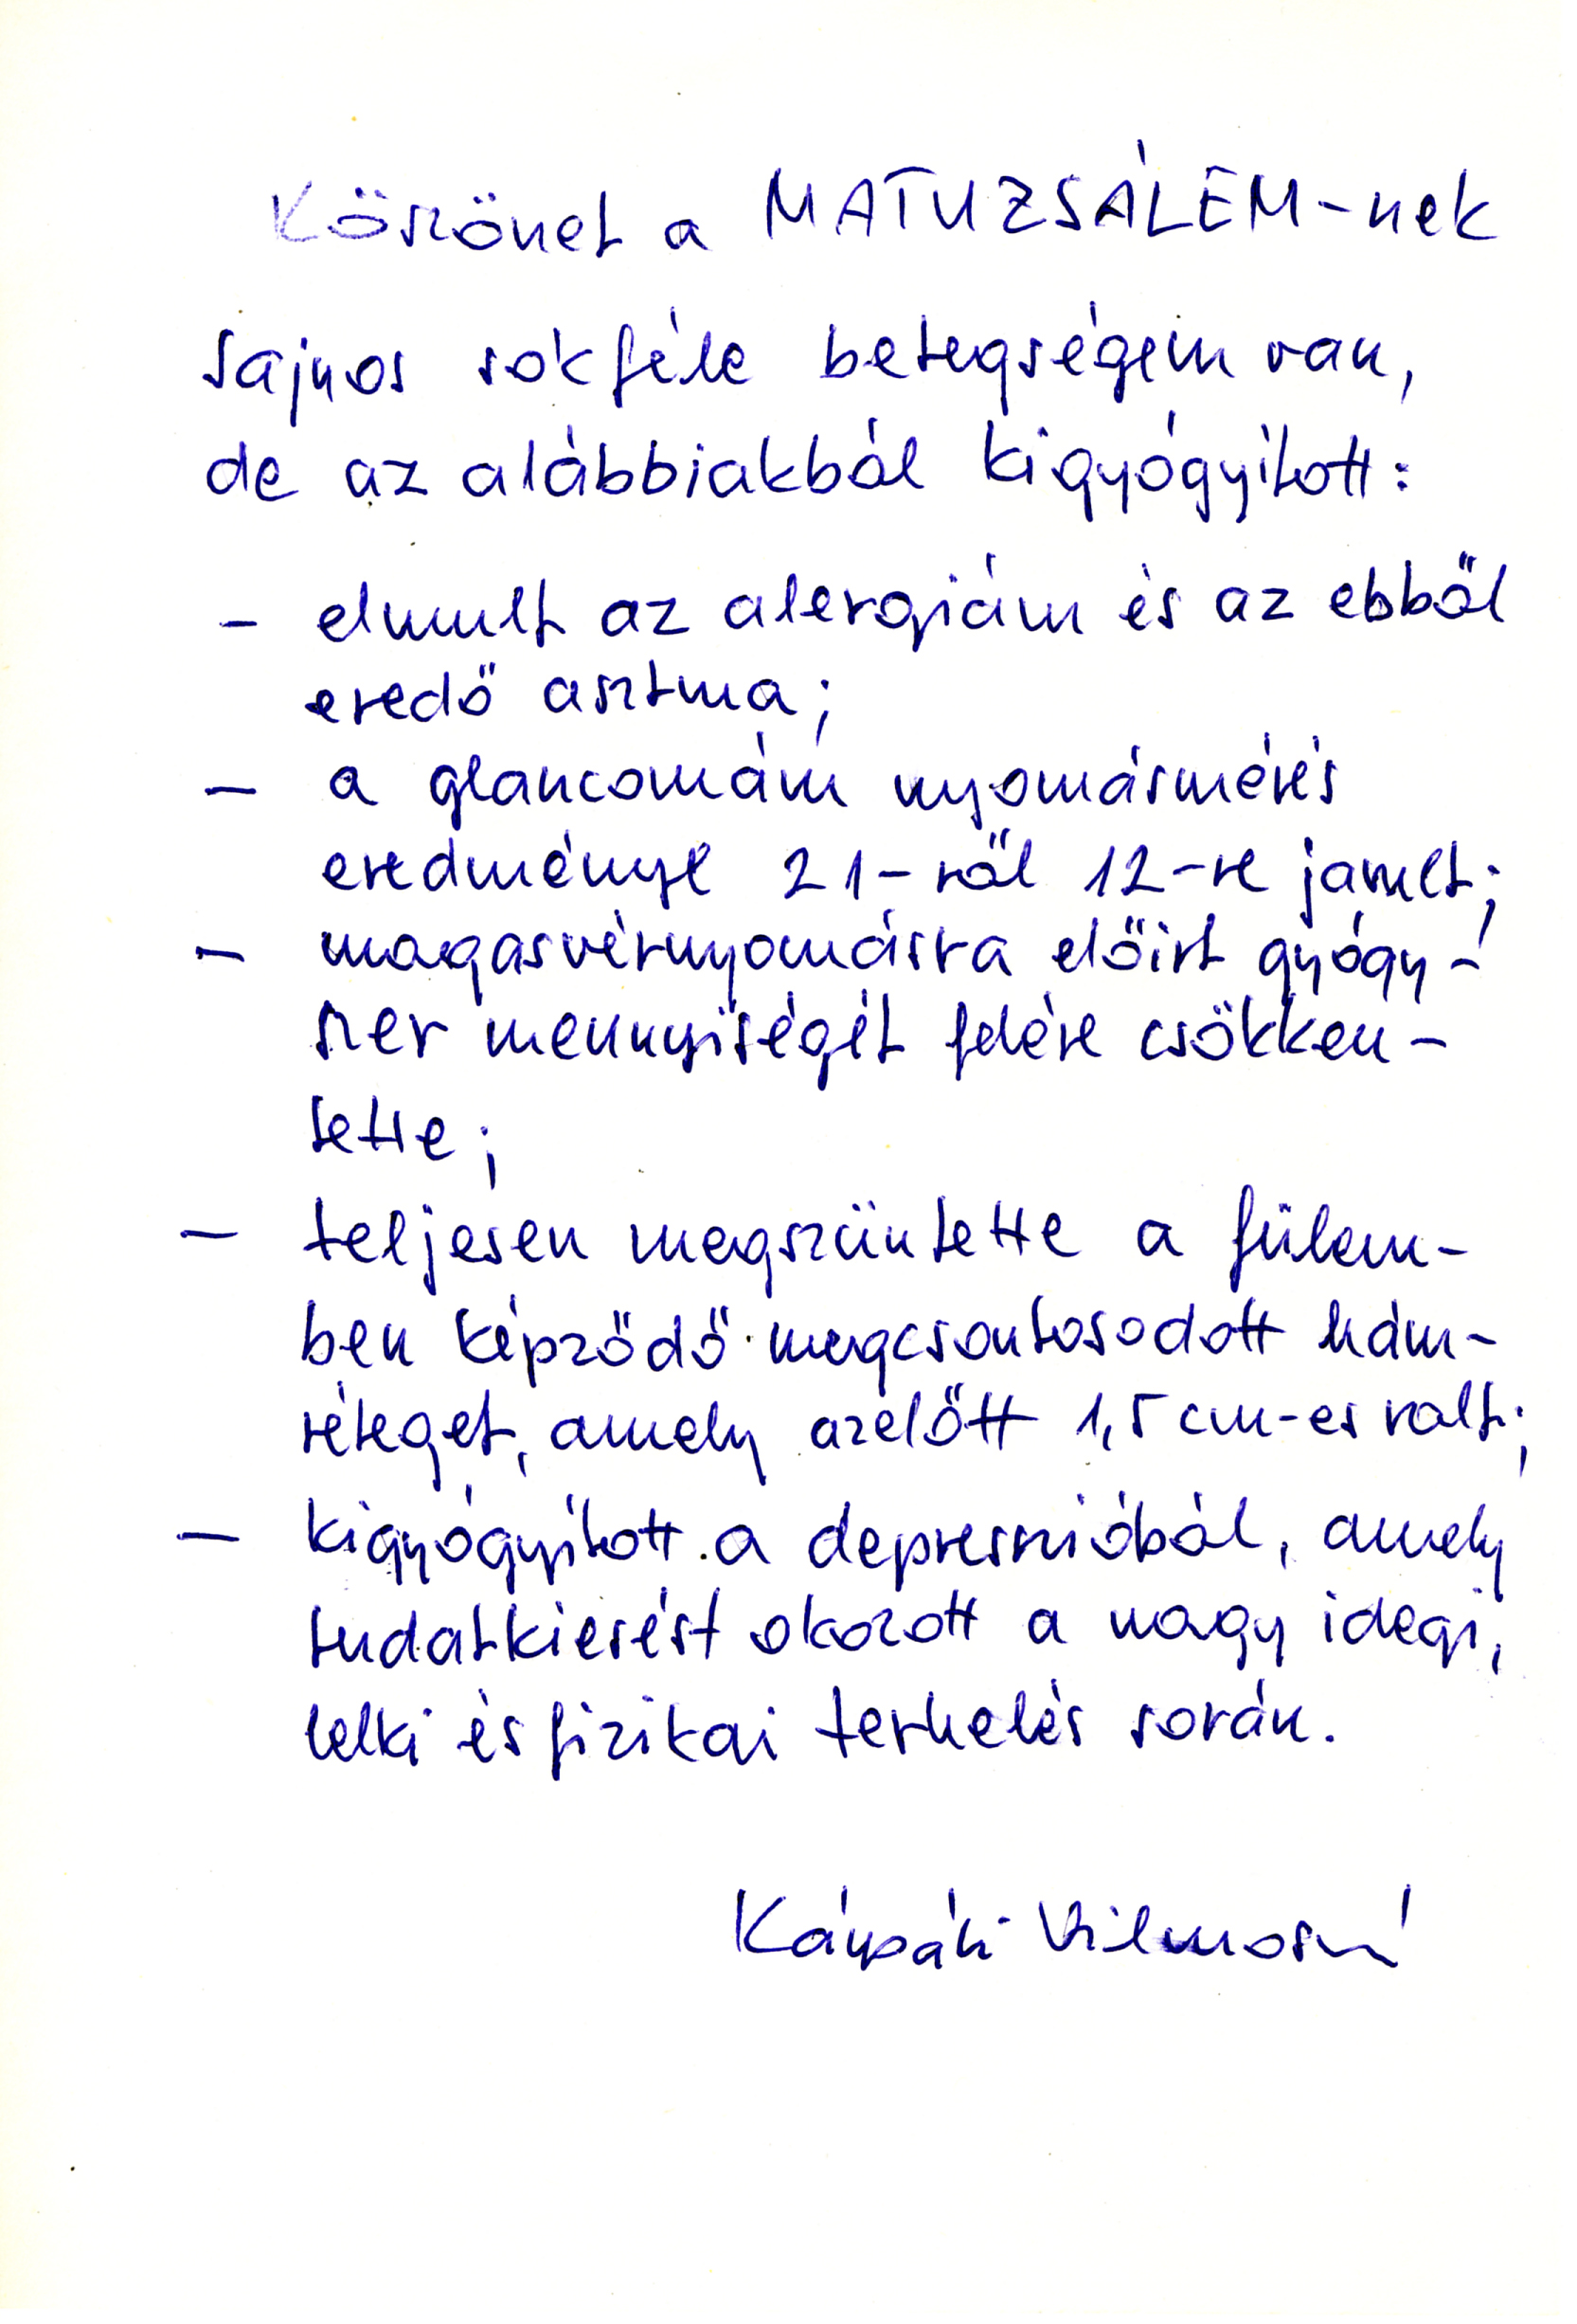 Köszönet a MATUZSÁLEM-nek
Sajnos sokféle betegségem van,
de az alábbiakból kigyógyított:
- elmult az alergiám és az ebből
eredő asztma;
- a glaucomám nyomásmérés
eredménye 21-ről 12-re javult;
- magasvérnyomásra előirt gyógy-
szer mennyiségét felére csökken-
tette;
- teljesen megszüntette a fülem-
ben képződő megcsontosodott hám-
réteget, amely azelőtt 1,5 cm-es volt;
- kigyógyított a depresszióból, amely
tudatkiesést okozott a nagy idegi,
lelki és fizikai terhelés során.
Kárpáti Vilmosné